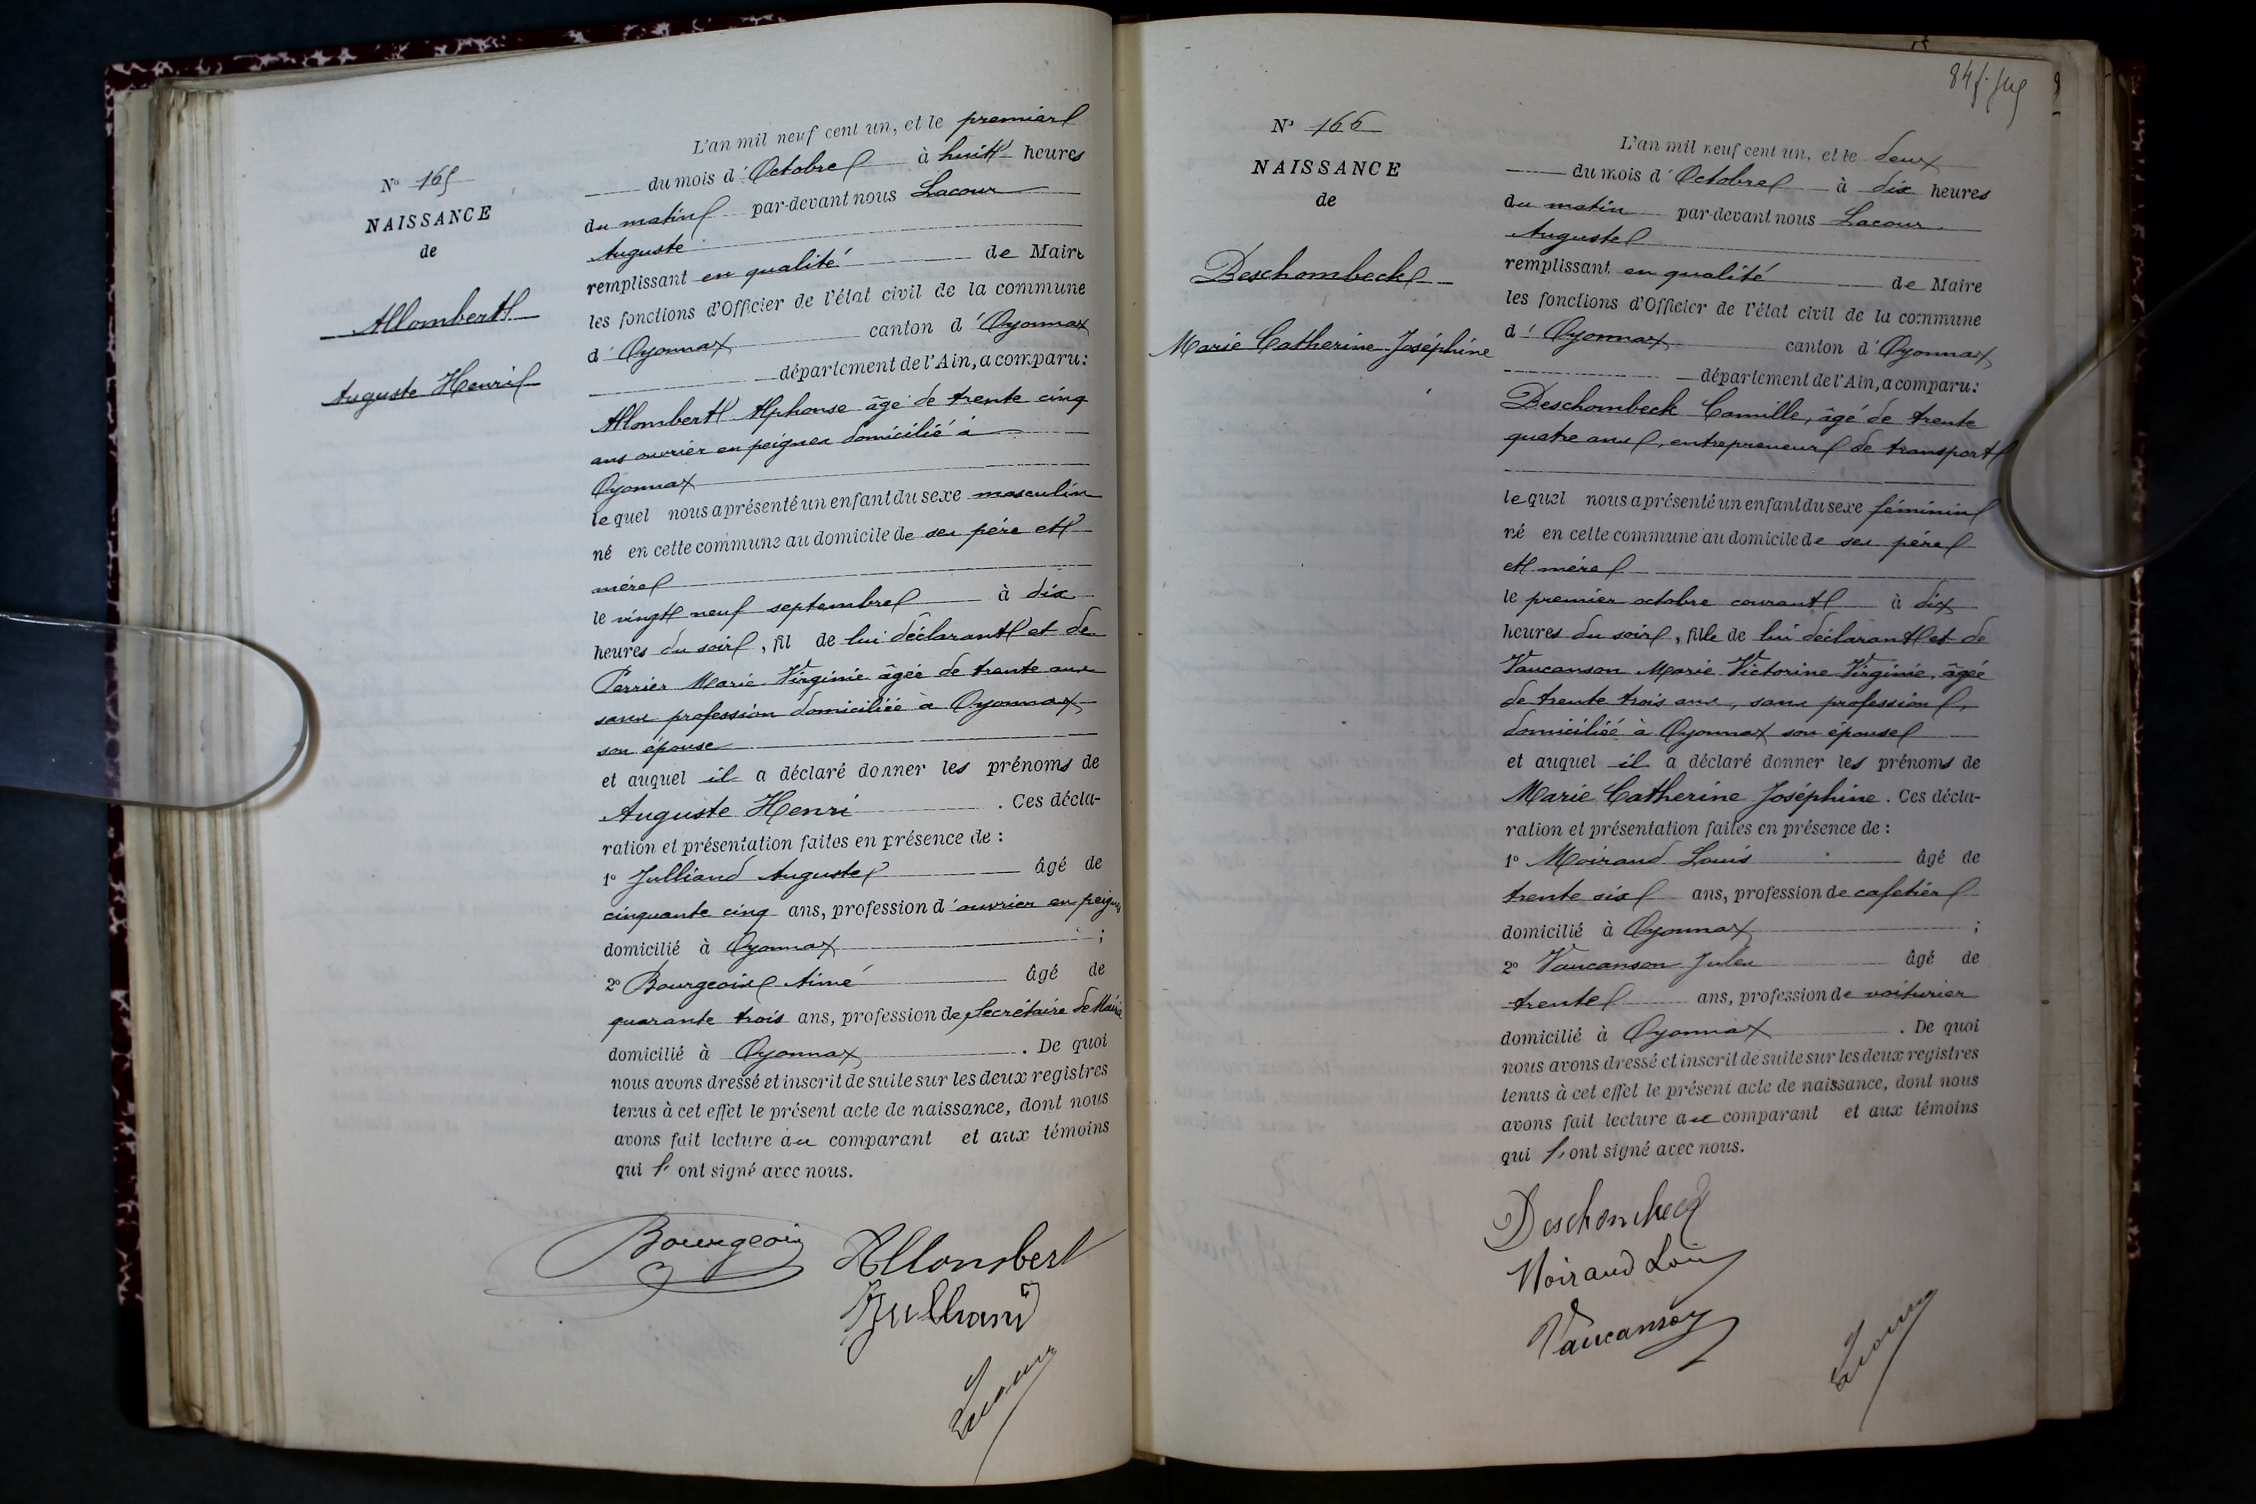 N° 165
NAISSANCE
de
Allombert
Auguste Henri
L'an mil neuf cent un, et le premier
du mois d'Octobre à huit heures
du matin par-devant nous Lacour
Auguste
remplissant en qualité de Maire
les fonctions d'Officier de l'état civil de la commune
d'Oyonnax canton d'Oyonnax
département de l'Ain, a comparu:
Allombert Alphonse âgé de trente cinq
ans ouvrier en peignes domicilié à
Oyonnax
lequel nous a présenté un enfant du sexe masculin
né en cette commune au domicile de ses père et
mère
le vingt neuf septembre à dix
heures du soir, fil de lui déclarant et de
Perrier Marie Virginie âgée de trente ans
sans profession domiciliée à Oyonnax
son épouse
et auquel il a déclaré donner les prénoms de
Auguste Henri. Ces décla-
ration et présentation faites en présence de :
1° Julliand Auguste âgé de
cinquante cinq ans, profession d'ouvrier en peignes
domicilié à Oyonnax ;
2° Bourgeois Aimé âgé de
quarante trois ans, profession de Secrétaire de Mairie
domicilié à Oyonnax. De quoi
nous avons dressé et inscrit de suite sur les deux registres
tenus à cet effet le présent acte de naissance, dont nous
avons fait lecture au comparant et aux témoins
qui l'ont signé avec nous.
Bourgeois Allombert
Julliand
Lacour
84
N° 166
NAISSANCE
de
Deschombeck
Marie Catherine Joséphine
L'an mil neuf cent un, et le deux
du mois d'Octobre à dix heures
du matin par-devant nous Lacour
Auguste
remplissant en qualité de Maire
les fonctions d'Officier de l'état civil de la commune
d'Oyonnax canton d'Oyonnax
département de l'Ain, a comparu:
Deschombeck Camille, âgé de trente
quatre ans, entrepreneur de transport
lequel nous a présenté un enfant du sexe féminin
né en cette commune au domicile de ses père
et mère
le premier octobre courant à dix
heures du soir, fille de lui déclarant et de
Vaucanson Marie Victorine Virginie, âgée
de trente trois ans, sans profession,
domiciliée à Oyonnax son épouse
et auquel il a déclaré donner les prénoms de
Marie Catherine Joséphine. Ces décla-
ration et présentation faites en présence de :
1° Moirand Louis âgé de
trente six ans, profession de cafetier
domicilié à Oyonnax ;
2° Vaucanson Jules âgé de
trente ans, profession de voiturier
domicilié à Oyonnax. De quoi
nous avons dressé et inscrit de suite sur les deux registres
tenus à cet effet le présent acte de naissance, dont nous
avons fait lecture au comparant et aux témoins
qui l'ont signé avec nous.
Deschombeck
Moirand Louis
Vaucanson
Lacour